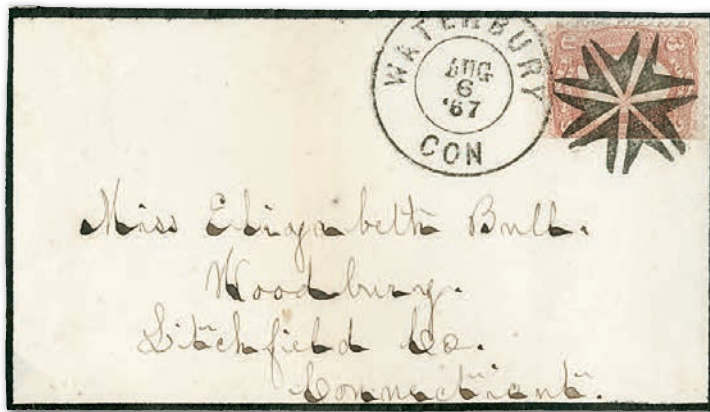 WATERBURY
AUG
6
'67
CON
3
Miss Elizabeth Bull.
Woodbury.
Litchfield Co.
Connecticut.